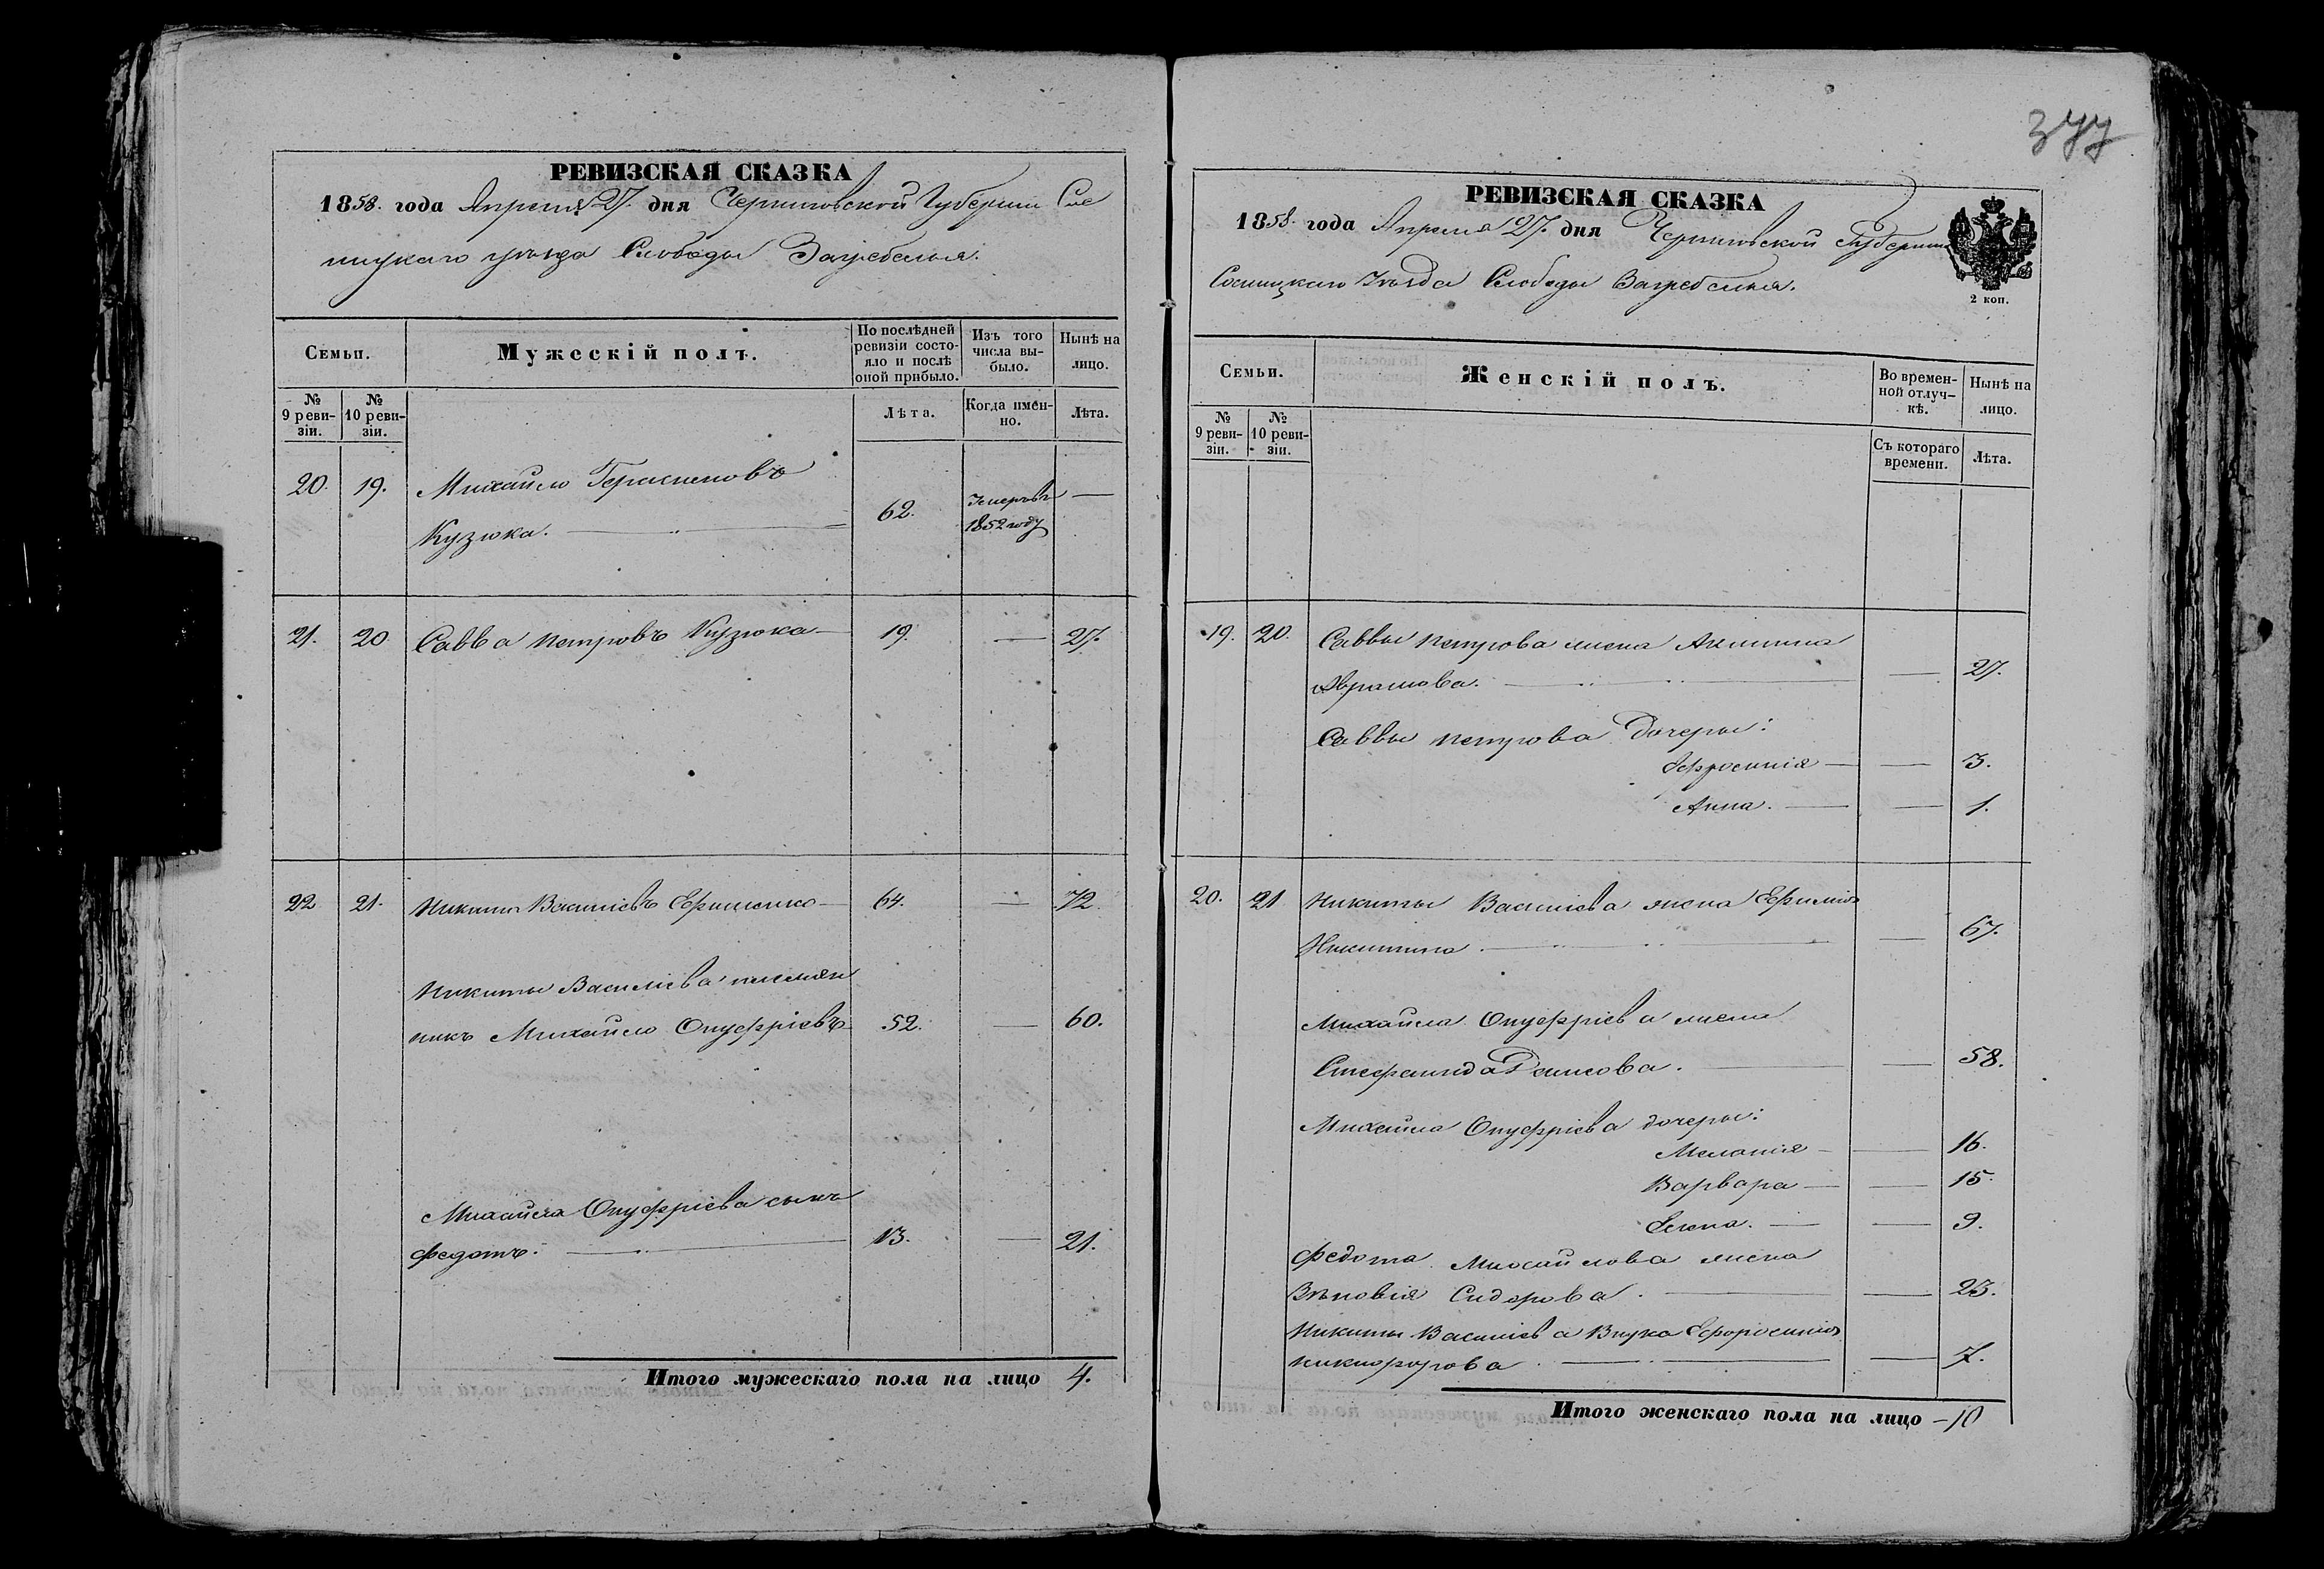 377
РЕВИЗСКАЯ СКАЗКА
1858. года Апреля 27. дня Черниговской Губернии Сос
ницкаго уѣзда Слободы Загребелья.
Семьи.
Мужескій полъ.
По послѣдней ревизіи состояло и послѣ оной прибыло.
Изъ того числа выбыло.
Нынѣ на лицо.
№ 9 ревизіи.
№ 10 ревизіи.
Лѣта.
Когда именно.
Лѣта.
20. 19. Михайло Герасимовъ
Кузюка. — 62. Умеръ въ 1852 году —
21. 20 Савва Петровъ Кузюка — 19. — 27.
22 21. Никита Василіевъ Ефименко — 64. — 72.
Никиты Василіева племян
никъ Михайло Онуфріевъ 52. — 60.
Михайла Онуфріева сынъ
Федотъ. — 13. — 21.
Итого мужескаго пола на лицо 4.
РЕВИЗСКАЯ СКАЗКА
1858. года Апреля 27. дня Черниговской Губернии
Сосницкаго Уѣзда Слободы Загребелья.
2 коп.
Семьи.
Женскій полъ.
Во временной отлучкѣ.
Нынѣ на лицо.
№ 9 ревизіи.
№ 10 ревизіи.
Съ котораго времени.
Лѣта.
19. 20. Саввы Петрова жена Акилина
Аврамова. — — 27.
Саввы Петрова Дочеры:
Ефросинія — — 3.
Анна. — — 1.
20. 21 Никиты Василіева жена Ефимія
Никитина — — 67.
Михайла Онуфріева жена
Стефанида Данилова. — — 58.
Михайла Онуфріева дочеры:
Меланія — — 16.
Варвара — — 15.
Елена. — — 9.
Федота Михайлова жена
Зѣновія Сидорова. — — 23.
Никиты Василіева Внука Ефоросинія
Никифорова — — 7.
Итого женскаго пола на лицо — 10